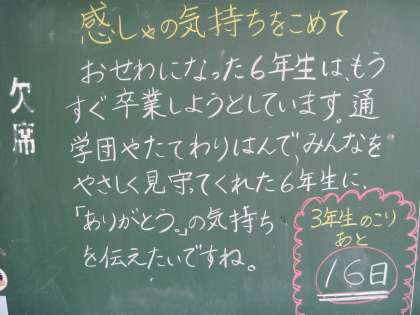 感しゃの気持ちをこめて
おせわになった6年生は、もう
すぐ卒業しようとしています。通
学団やたてわりはんで、みんなを
やさしく見守ってくれた6年生に、
「ありがとう。」の気持ち
を伝えたいですね。
欠席
3年生のこり
あと
16日